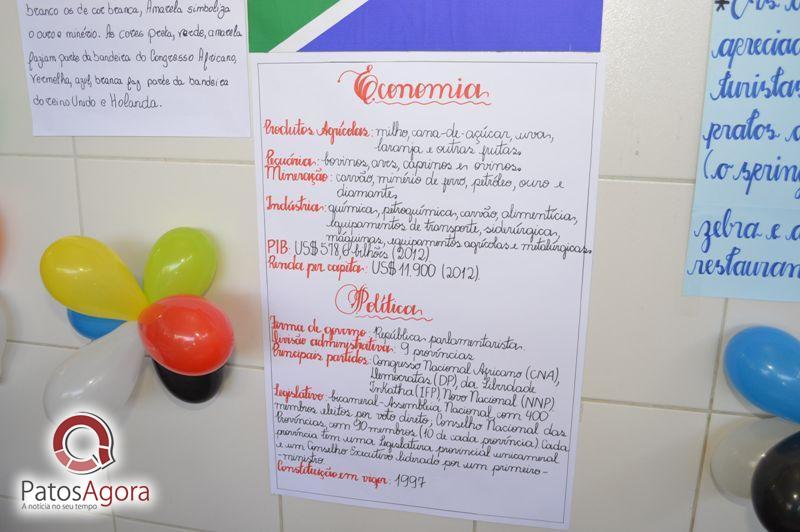 branco os de cor branca, Amarela simboliza
o ouro e minério. As cores preta, verde, amarela
faziam parte da bandeira do Congresso Africano,
vermelha, azul, branca faz parte da bandeira
do reino Unido e Holanda.
Economia
Produtos Agrícolas: milho, cana-de-açúcar, uvas,
laranja e outras frutas.
Pecuária: bovinos, aves, caprinos e ovinos.
Mineração: carvão, minério de ferro, petróleo, ouro e
diamante.
Indústria: química, pitroquímica, carvão, alimentícia,
equipamentos de transporte, siderúrgicas,
máquinas, equipamentos agrícolas e metalúrgicas.
PIB: US$ 578,6 bilhões (2012)
Renda per capita: US$ 11.900 (2012)
Política
Forma de governo: República parlamentarista.
Divisão administrativa: 9 províncias
Principais partidos: Congresso Nacional Africano (CNA),
Democratas (DP), da Liberdade
Inkatha (IFP) Novo Nacional (NNP)
Legislativo: bicameral - Assembleia Nacional, com 400
membros eleitos por voto direto; Conselho Nacional das
Províncias, com 90 membros (10 de cada província). Cada
província tem uma legislatura provincial unicameral
e um Conselho Executivo liderado por um primeiro-
-ministro.
Constituição em vigor: 1997
apreciad
turistas
pratos
(o spring
zebra e a
restauran
PatosAgora
A notícia no seu tempo